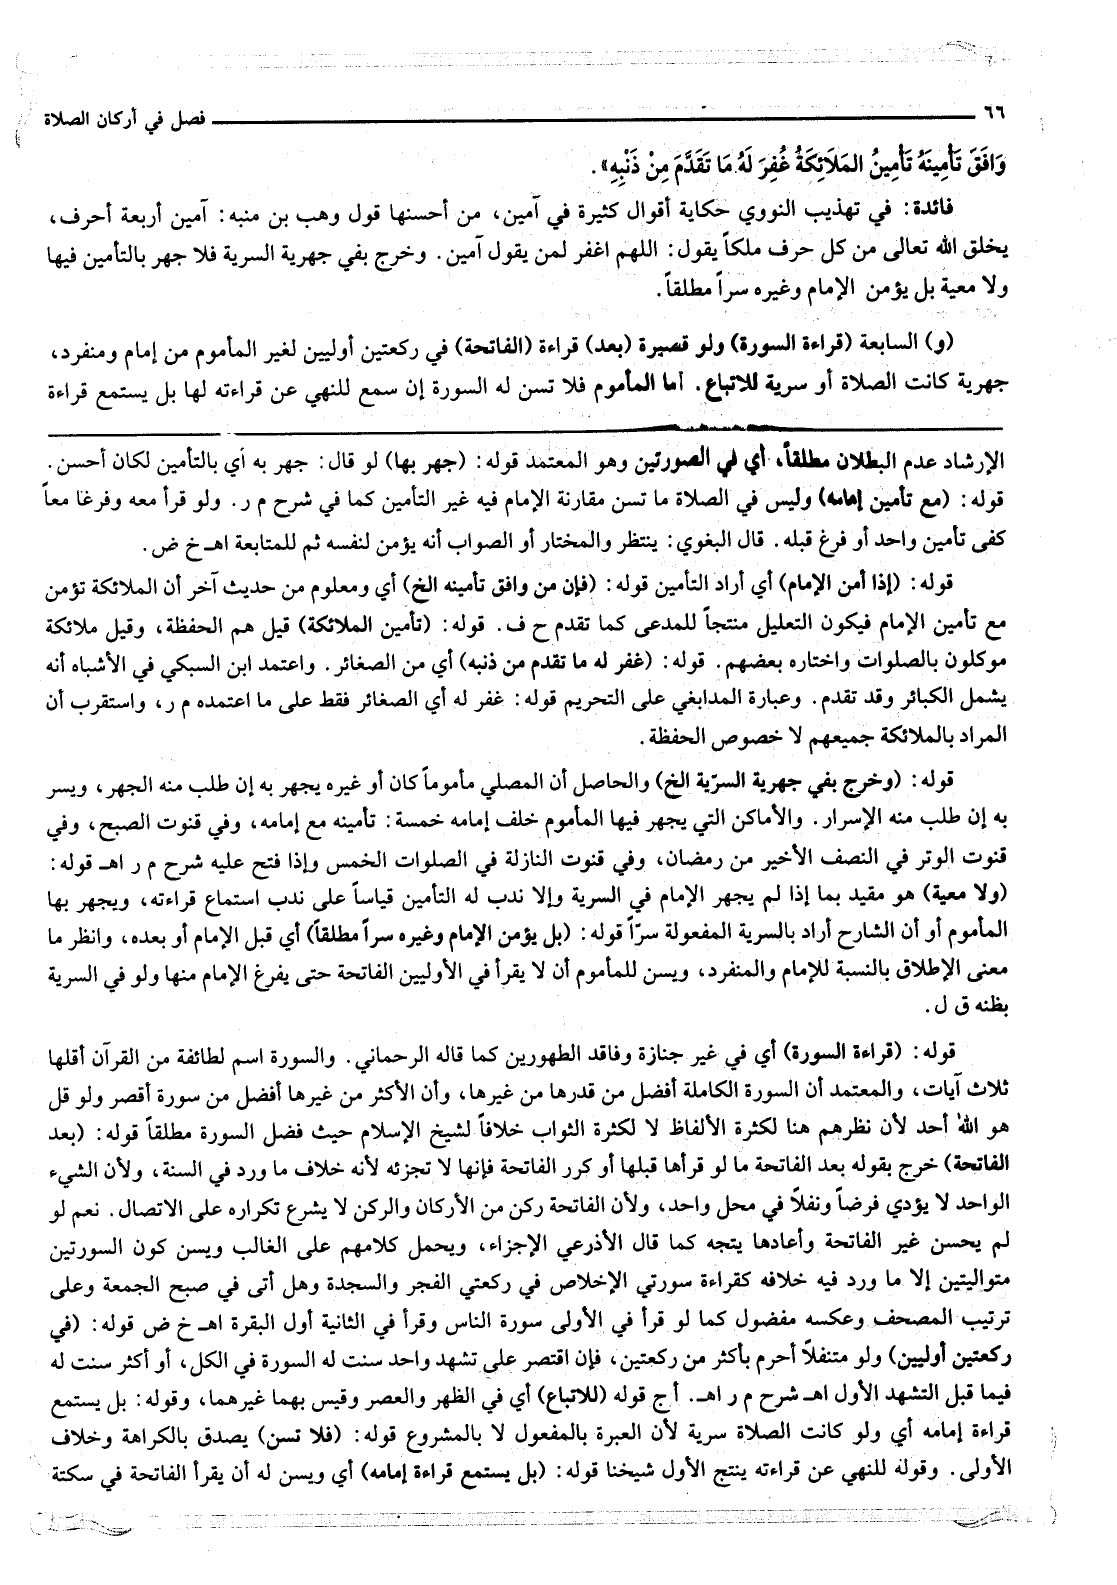 ٦٦ فصل في أركان الصلاة
وَافَقَ تَأْمِينَهُ تَأْمِينُ المَلَائِكَةُ غُفِرَ لَهُ مَا تَقَدَّمَ مِنْ ذَنْبِهِ».
فائدة: في تهذيب النووي حكاية أقوال كثيرة في آمين، من أحسنها قول وهب بن منبه: آمين أربعة أحرف،
يخلق الله تعالى من كل حرف ملكاً يقول: اللهم اغفر لمن يقول آمين. وخرج بفي جهرية السرية فلا جهر بالتأمين فيها
ولا معية بل يؤمن الإمام وغيره سراً مطلقاً.
(و) السابعة (قراءة السورة) ولو قصيرة (بعد) قراءة (الفاتحة) في ركعتين أوليين لغير المأموم من إمام ومنفرد،
جهرية كانت الصلاة أو سرية للاتباع. أما المأموم فلا تسن له السورة إن سمع للنهي عن قراءته لها بل يستمع قراءة
الإرشاد عدم البطلان مطلقاً، أي في الصورتين وهو المعتمد قوله: (جهر بها) لو قال: جهر به أي بالتأمين لكان أحسن.
قوله: (مع تأمين إمامه) وليس في الصلاة ما تسن مقارنة الإمام فيه غير التأمين كما في شرح م ر. ولو قرأ معه وفرغا معاً
كفى تأمين واحد أو فرغ قبله. قال البغوي: ينتظر والمختار أو الصواب أنه يؤمن لنفسه ثم للمتابعة اهـ خ ض.
قوله: (إذا أمن الإمام) أي أراد التأمين قوله: (فإن من وافق تأمينه الخ) أي ومعلوم من حديث آخر أن الملائكة تؤمن
مع تأمين الإمام فيكون التعليل منتجاً للمدعى كما تقدم ح ف. قوله: (تأمين الملائكة) قيل هم الحفظة، وقيل ملائكة
موكلون بالصلوات واختاره بعضهم. قوله: (غفر له ما تقدم من ذنبه) أي من الصغائر. واعتمد ابن السبكي في الأشباه أنه
يشمل الكبائر وقد تقدم. وعبارة المدابغي على التحريم قوله: غفر له أي الصغائر فقط على ما اعتمده م ر، واستقرب أن
المراد بالملائكة جميعهم لا خصوص الحفظة.
قوله: (وخرج بفي جهرية السرّية الخ) والحاصل أن المصلي مأموماً كان أو غيره يجهر به إن طلب منه الجهر، ويسر
به إن طلب منه الإسرار. والأماكن التي يجهر فيها المأموم خلف إمامه خمسة: تأمينه مع إمامه، وفي قنوت الصبح، وفي
قنوت الوتر في النصف الأخير من رمضان، وفي قنوت النازلة في الصلوات الخمس وإذا فتح عليه شرح م ر اهـ قوله:
(ولا معية) هو مقيد بما إذا لم يجهر الإمام في السرية وإلا ندب له التأمين قياساً على ندب استماع قراءته، ويجهر بها
المأموم أو أن الشارح أراد بالسرية المفعولة سرّاً قوله: (بل يؤمن الإمام وغيره سراً مطلقاً) أي قبل الإمام أو بعده، وانظر ما
معنى الإطلاق بالنسبة للإمام والمنفرد، ويسن للمأموم أن لا يقرأ في الأوليين الفاتحة حتى يفرغ الإمام منها ولو في السرية
بظنه ق ل.
قوله: (قراءة السورة) أي في غير جنازة وفاقد الطهورين كما قاله الرحماني. والسورة اسم لطائفة من القرآن أقلها
ثلاث آيات، والمعتمد أن السورة الكاملة أفضل من قدرها من غيرها، وأن الأكثر من غيرها أفضل من سورة أقصر ولو قل
هو اللهُ أحد لأن نظرهم هنا لكثرة الألفاظ لا لكثرة الثواب خلافاً لشيخ الإسلام حيث فضل السورة مطلقاً قوله: (بعد
الفاتحة) خرج بقوله بعد الفاتحة ما لو قرأها قبلها أو كرر الفاتحة فإنها لا تجزئه لأنه خلاف ما ورد في السنة، ولأن الشيء
الواحد لا يؤدي فرضاً ونفلاً في محل واحد، ولأن الفاتحة ركن من الأركان والركن لا يشرع تكراره على الاتصال. نعم لو
لم يحسن غير الفاتحة وأعادها يتجه كما قال الأذرعي الإجزاء، ويحمل كلامهم على الغالب ويسن كون السورتين
متواليتين إلا ما ورد فيه خلافه كقراءة سورتي الإخلاص في ركعتي الفجر والسجدة وهل أتى في صبح الجمعة وعلى
ترتيب المصحف وعكسه مفضول كما لو قرأ في الأولى سورة الناس وقرأ في الثانية أول البقرة اهـ خ ض قوله: (في
ركعتين أوليين) ولو متنفلاً أحرم بأكثر من ركعتين، فإن اقتصر على تشهد واحد سنت له السورة في الكل، أو أكثر سنت له
فيما قبل التشهد الأول اهـ شرح م ر اهـ. أ ج قوله (للاتباع) أي في الظهر والعصر وقيس بهما غيرهما، وقوله: بل يستمع
قراءة إمامه أي ولو كانت الصلاة سرية لأن العبرة بالمفعول لا بالمشروع قوله: (فلا تسن) يصدق بالكراهة وخلاف
الأولى. وقوله للنهي عن قراءته ينتج الأول شيخنا قوله: (بل يستمع قراءة إمامه) أي ويسن له أن يقرأ الفاتحة في سكتة